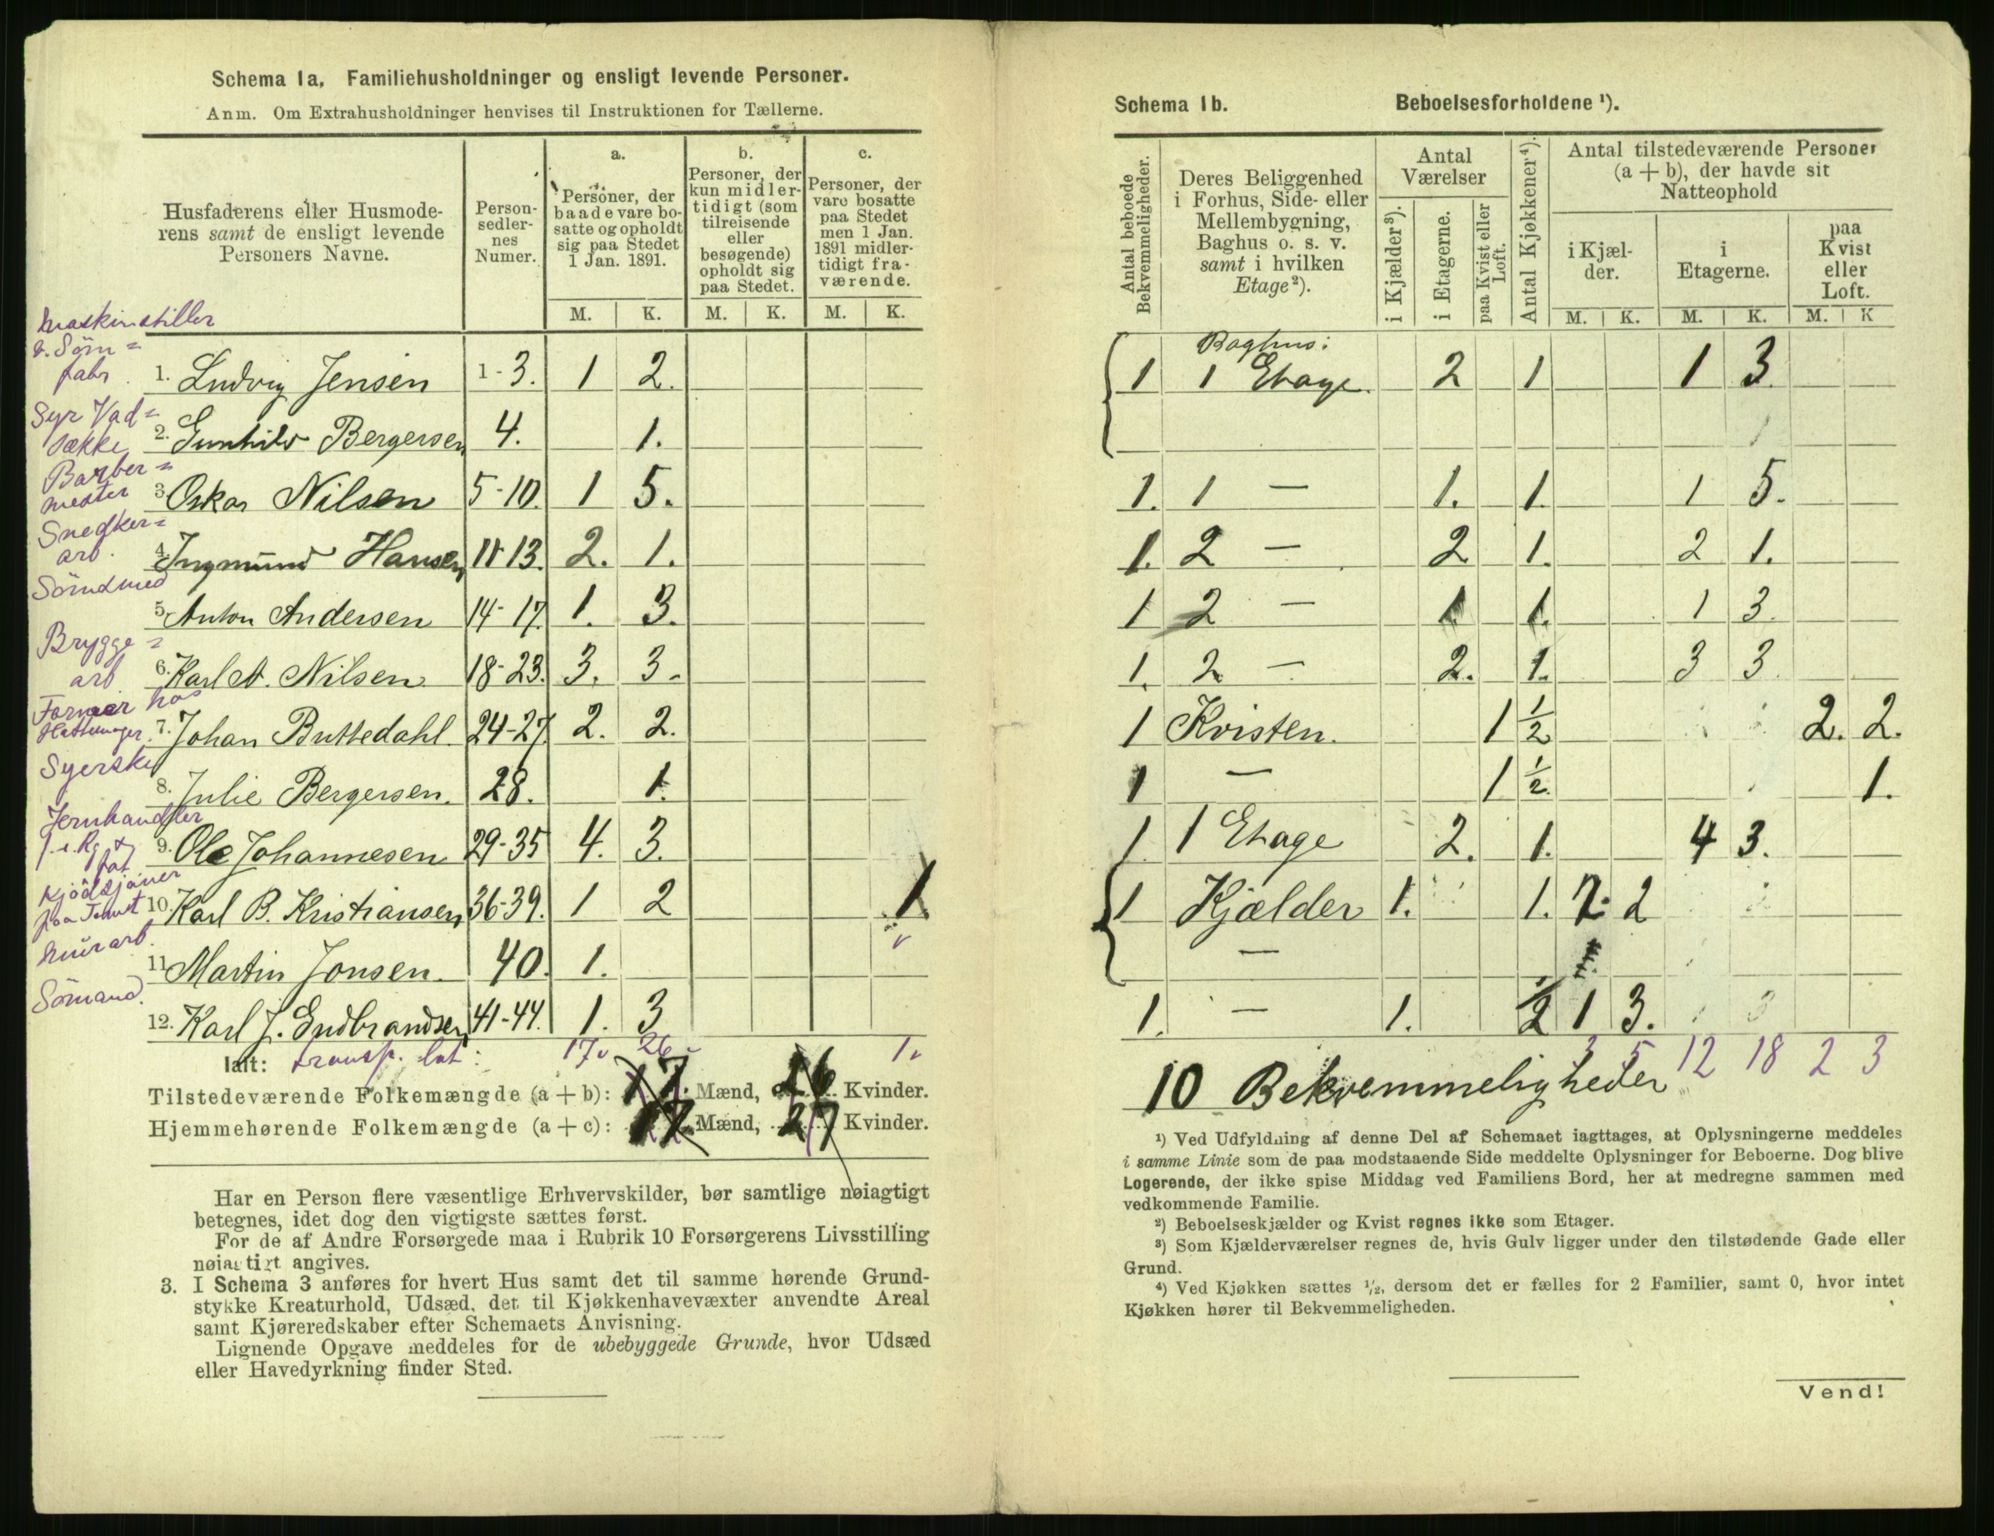 Schema 1a. Familiehusholdninger og ensligt levende Personer.
Anm. Om Extrahusholdninger henvises til Instruktionen for Tællerne.
Husfaderens eller Husmoderens samt de ensligt levende Personers Navne. | Personsedlernes Numer. | a. Personer, der baade vare bosatte og opholdt sig paa Stedet 1 Jan. 1891. | b. Personer, der kun midlertidigt (som tilreisende eller besøgende) opholdt sig paa Stedet. | c. Personer, der vare bosatte paa Stedet men 1 Jan. 1891 midlertidigt fraværende.
M. K. M. K. M. K.
Maskinstiller
v. Søm=
fabr.
1. Ludvig Jensen 1-3. 1 2.
Syr Vad=
sække
2. Gunhild Bergersen 4. 1.
Barber=
mester
3. Oskar Nilsen 5-10. 1 5.
Snedker=
arb.
4. Ingmund Hansen 11-13. 2. 1.
Sömdmed
5. Anton Andersen 14-17. 1. 3.
Brygge=
arb.
6. Karl A. Nilsen 18-23. 3. 3.
Former hos
7. Johan Buttedahl. 24-27. 2. 2.
Syerske
8. Julie Bergersen. 28. 1.
Jernhandler
f. e. Rg.
9. Ole Johannesen 29-35 4. 3.
10. Karl B. Kristiansen 36-39. 1 2 1
Murarb.
11 Martin Jonsen. 40. 1.
Sömand.
12. Karl J. Gudbrandsen 41-44. 1. 3
Ialt: transp. lat: 17. 26. 1.
Tilstedeværende Folkemængde (a + b): 17. Mænd, 26 Kvinder.
Hjemmehørende Folkemængde (a + c): 17. Mænd, 27 Kvinder.
Har en Person flere væsentlige Erhvervskilder, bør samtlige nøiagtigt
betegnes, idet dog den vigtigste sættes først.
For de af Andre Forsørgede maa i Rubrik 10 Forsørgerens Livsstilling
nøiagtigt angives.
3. I Schema 3 anføres for hvert Hus samt det til samme hørende Grund-
stykke Kreaturhold, Udsæd, det til Kjøkkenhavevæxter anvendte Areal
samt Kjøreredskaber efter Schemaets Anvisning.
Lignende Opgave meddeles for de ubebyggede Grunde, hvor Udsæd
eller Havedyrkning finder Sted.
Schema 1b. Beboelsesforholdene ¹).
Antal beboede Bekvemmeligheder. | Deres Beliggenhed i Forhus, Side- eller Mellembygning, Baghus o. s. v. samt i hvilken Etage ²). | Antal Værelser | Antal Kjøkkener ⁴). | Antal tilstedeværende Personer (a + b), der havde sit Natteophold
i Kjælder ³). | i Etagerne. | paa Kvist eller Loft. | i Kjælder. | i Etagerne. | paa Kvist eller Loft.
M. K. M. K. M. K
Baghus:
1 1 Etage. 2 1 1 3
1. 1 — 1. 1. 1 5.
1. 2 — 2 1. 2 1.
1 2 — 1 1. 1 3.
1. 2 — 2. 1. 3 3
1 Kvisten. 1 ½ 2. 2.
1 — 1 ½ 1.
1. 1 Etage 2. 1. 4 3.
1 Kjælder 1. 1. 2. 2
—
1. — 1. ½ 1 3.
3 5 12 18 2 3
10 Bekvemmeligheder
¹) Ved Udfyldning af denne Del af Schemaet iagttages, at Oplysningerne meddeles
i samme Linie som de paa modstaaende Side meddelte Oplysninger for Beboerne. Dog blive
Logerende, der ikke spise Middag ved Familiens Bord, her at medregne sammen med
vedkommende Familie.
²) Beboelseskjælder og Kvist regnes ikke som Etager.
³) Som Kjælderværelser regnes de, hvis Gulv ligger under den tilstødende Gade eller
Grund.
⁴) Ved Kjøkken sættes ½, dersom det er fælles for 2 Familier, samt 0, hvor intet
Kjøkken hører til Bekvemmeligheden.
Vend!